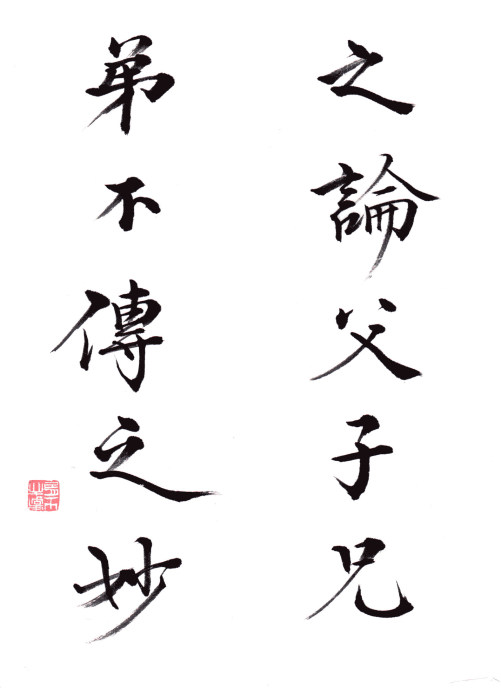 之論父子兄
弟不傳之妙